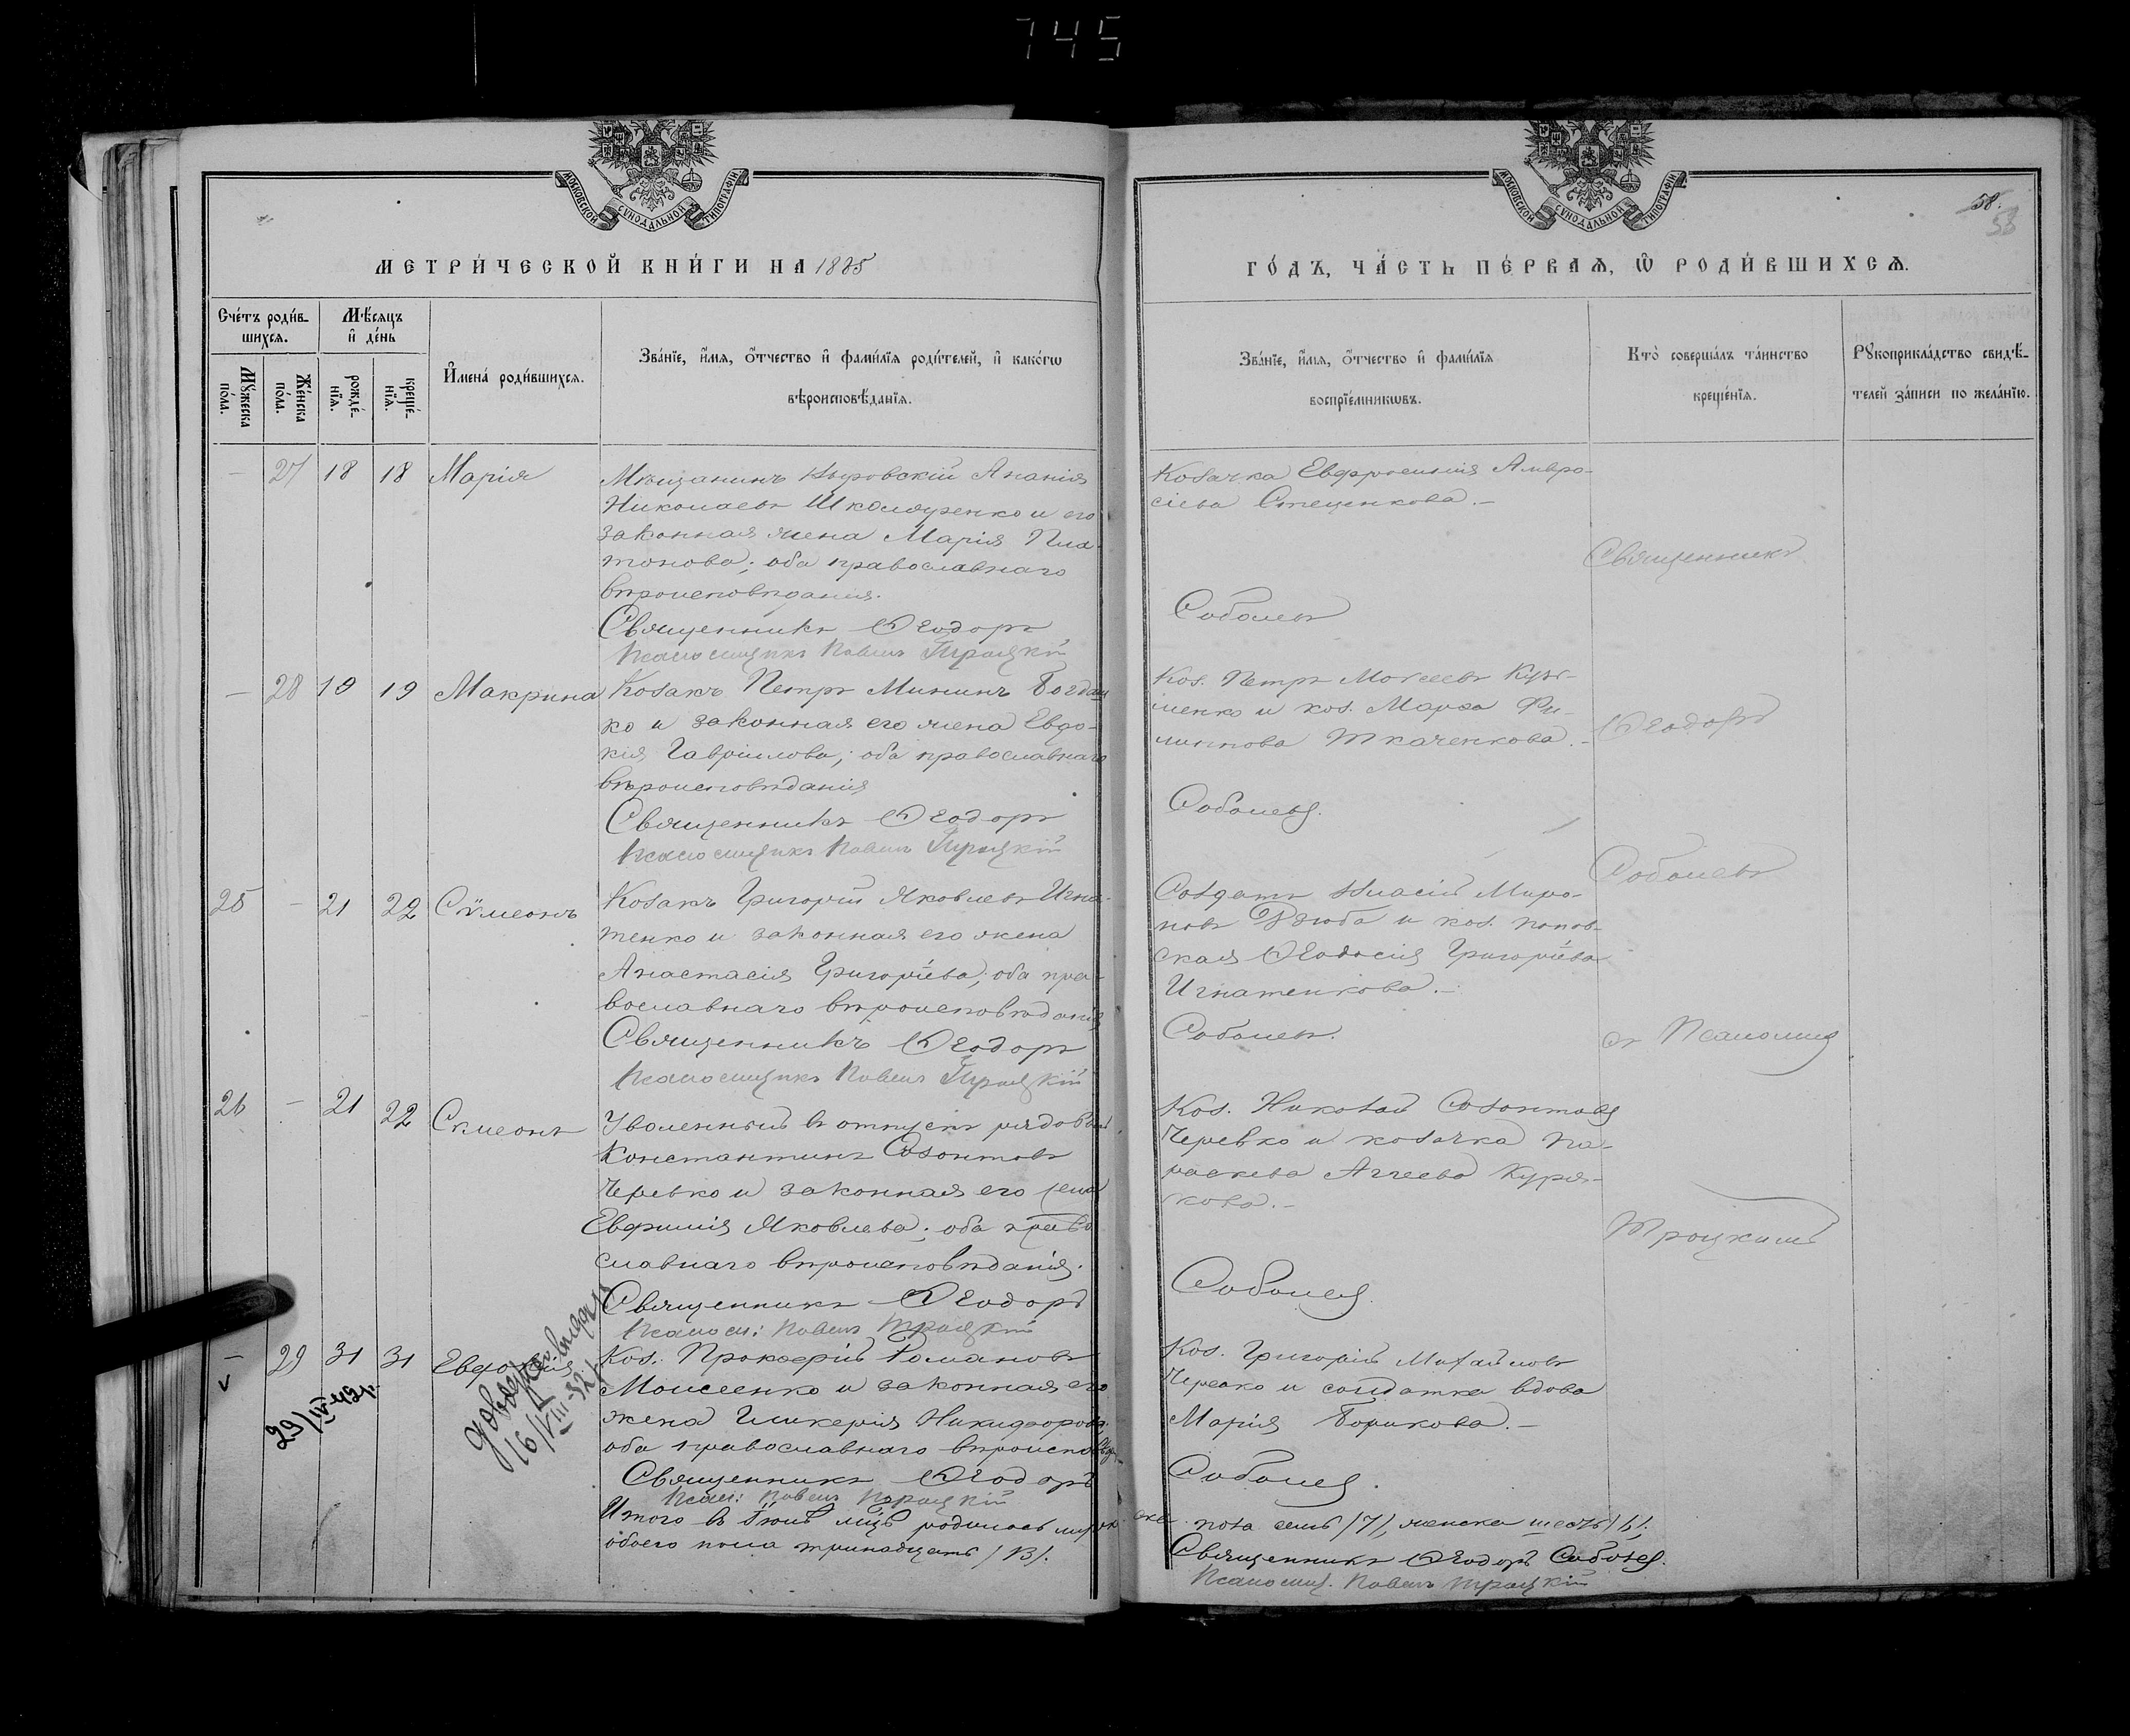 745
МОСКОВСКОЙ СУНОДАЛЬНОЙ ТИПОГРАФІИ
МОСКОВСКОЙ СУНОДАЛЬНОЙ ТИПОГРАФІИ
58.
58
МЕТРИ́ЧЕСКОЙ КНИ́ГИ НА 1885
ГО́ДЪ, ЧА́СТЬ ПЕ́РВАѦ, Ѡ҆ РОДИ́ВШИХСѦ.
Сче́тъ роди́в-
шихсѧ.
Мѣ́сѧцъ
и҆ де́нь
Мꙋ́жеска
по́ла.
Же́нска
по́ла.
рожде́-
нїѧ.
креще́-
нїѧ.
И҆мена̀ роди́вшихсѧ.
Зва́нїе, и҆́мѧ, ѻ҆́тчество и҆ фами́лїѧ роди́телей, и҆ како́гѡ
вѣроисповѣ́данїѧ.
Зва́нїе, и҆́мѧ, ѻ҆́тчество и҆ фами́лїѧ
воспрїе́мникѡвъ.
Кто̀ соверша́лъ та́инство
креще́нїѧ.
Рꙋкоприкла́дство свидѣ́-
телей за́писи по жела́нїю.
— 27 18 18 Марія
Мѣщанинъ Ананія
Николаевъ Школяренко и его
законная жена Марія Пла-
тонова; оба православнаго
вѣроисповѣданія.
Священникъ Ѳеодоръ
Псаломщикъ Павелъ Троцкій
Козачка Евфросинія Амвро-
сіева Стеценкова.—
Соболевъ
— 28 19 19 Макрина
Козакъ Петръ Мининъ Богдан
ко и законная его жена Евдо-
кія Гавріилова; оба православнаго
вѣроисповѣданія
Священникъ Ѳеодоръ
Псаломщикъ Павелъ Троцкій
Коз. Петръ Моисеевъ Кузь-
менко и коз. Марѳа Фи-
липпова Ткаченкова.—
Соболевъ.
25 — 21 22 Сѵмеонъ
Козакъ Григорій Яковлевъ Игна-
тенко и законная его жена
Анастасія Григоріева; оба пра-
вославнаго вѣроисповѣданія
Священникъ Ѳеодоръ
Псаломщикъ Павелъ Троцкій
Солдатъ Власій Миро-
новъ Дзюба и коз. попов-
ская Ѳеодосія Григоріева
Игнатенкова.—
Соболевъ.
26 — 21 22 Симеонъ
Уволенный въ отпускъ рядовый
Константинъ Созонтовъ
Черевко и законная его жена
Евфимія Яковлева; оба право-
славнаго вѣроисповѣданія.
Священникъ Ѳеодоръ
Псаломщ: Павелъ Троцкій
Коз. Николай Созонтовъ
Черевко и козачка Па-
раскева Аггеева Куря-
кова.—
Соболевъ.
— 29 31 31 Евдокія
Коз. Прокофій Романовъ
Моисеенко и законная его
жена Гликерія Никифорова;
оба православнаго вѣроисповѣд.
Священникъ Ѳеодоръ
Псал: Павелъ Троцкій
Коз. Григорій Михайловъ
Черевко и солдатка вдова
Марія Борикова.—
Соболевъ.
Священникъ
Ѳеодоръ
Соболевъ
съ Псаломщ
Троцкимъ
29/IV-42р.
16/VIII-32
Итого въ Іюлѣ мѣсяцѣ родилось муже-
ска пола семь /7/, женска шесть /6/.
обоего пола тринадцать /13/.
Священникъ Ѳеодоръ Соболевъ.
Псаломщ. Павелъ Троцкій